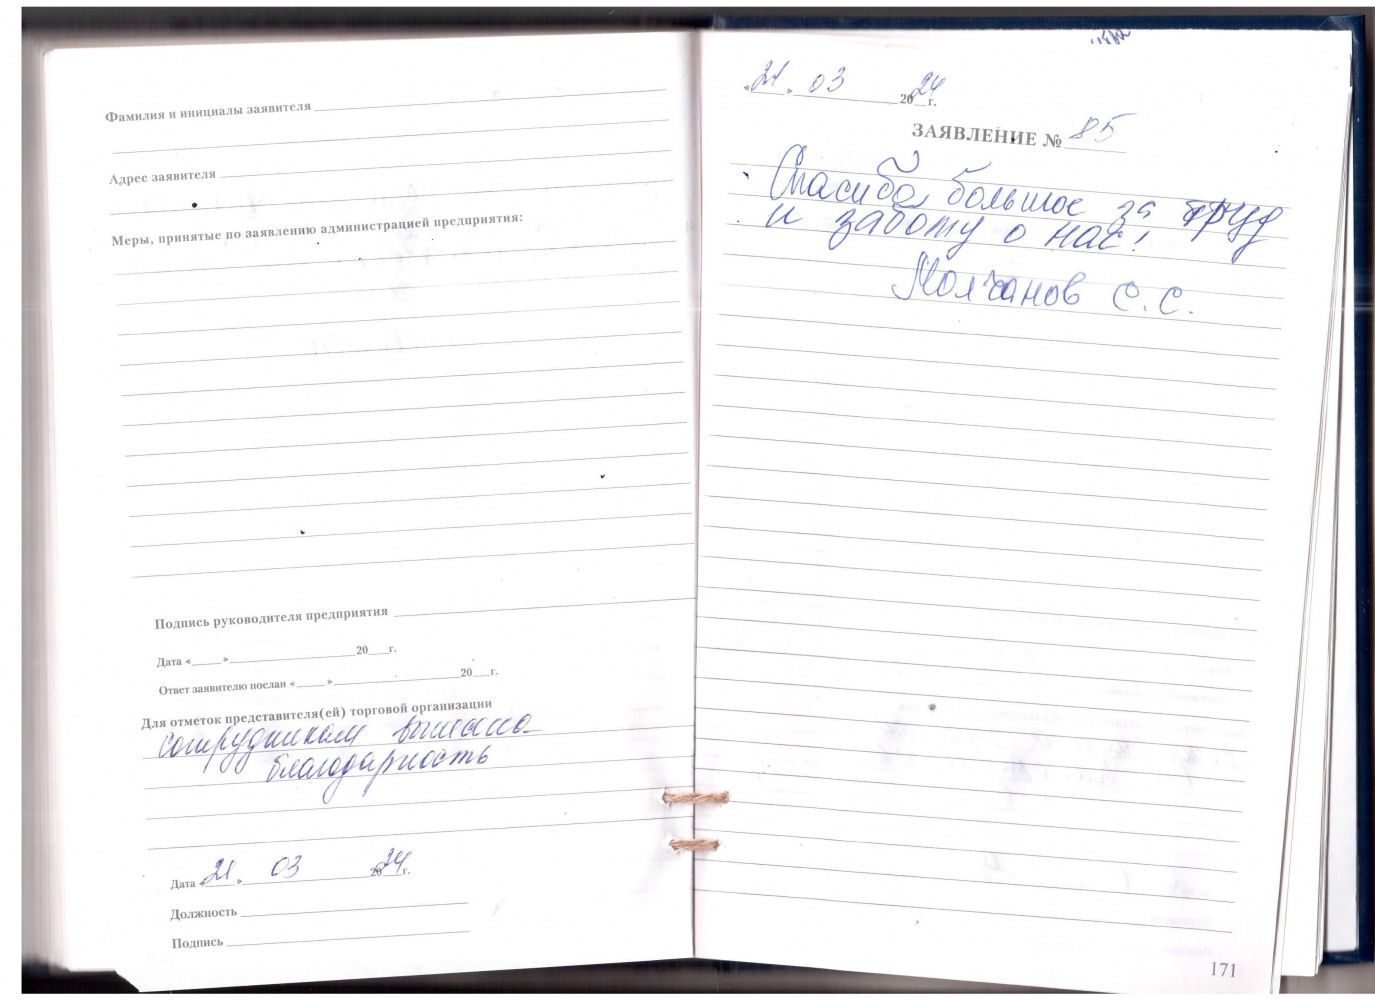 Фамилия и инициалы заявителя
Адрес заявителя
Меры, принятые по заявлению администрацией предприятия:
Подпись руководителя предприятия
Дата «____»____20__г.
Ответ заявителю послан «____»____20__г.
Для отметок представителя(ей) торговой организации
сотрудникам
благодарность
Дата «21» 03 2024г.
Должность
Подпись
«21» 03 2024г.
ЗАЯВЛЕНИЕ № 85
Спасибо большое за труд
и заботу о нас!
Молчанов С.С.
171